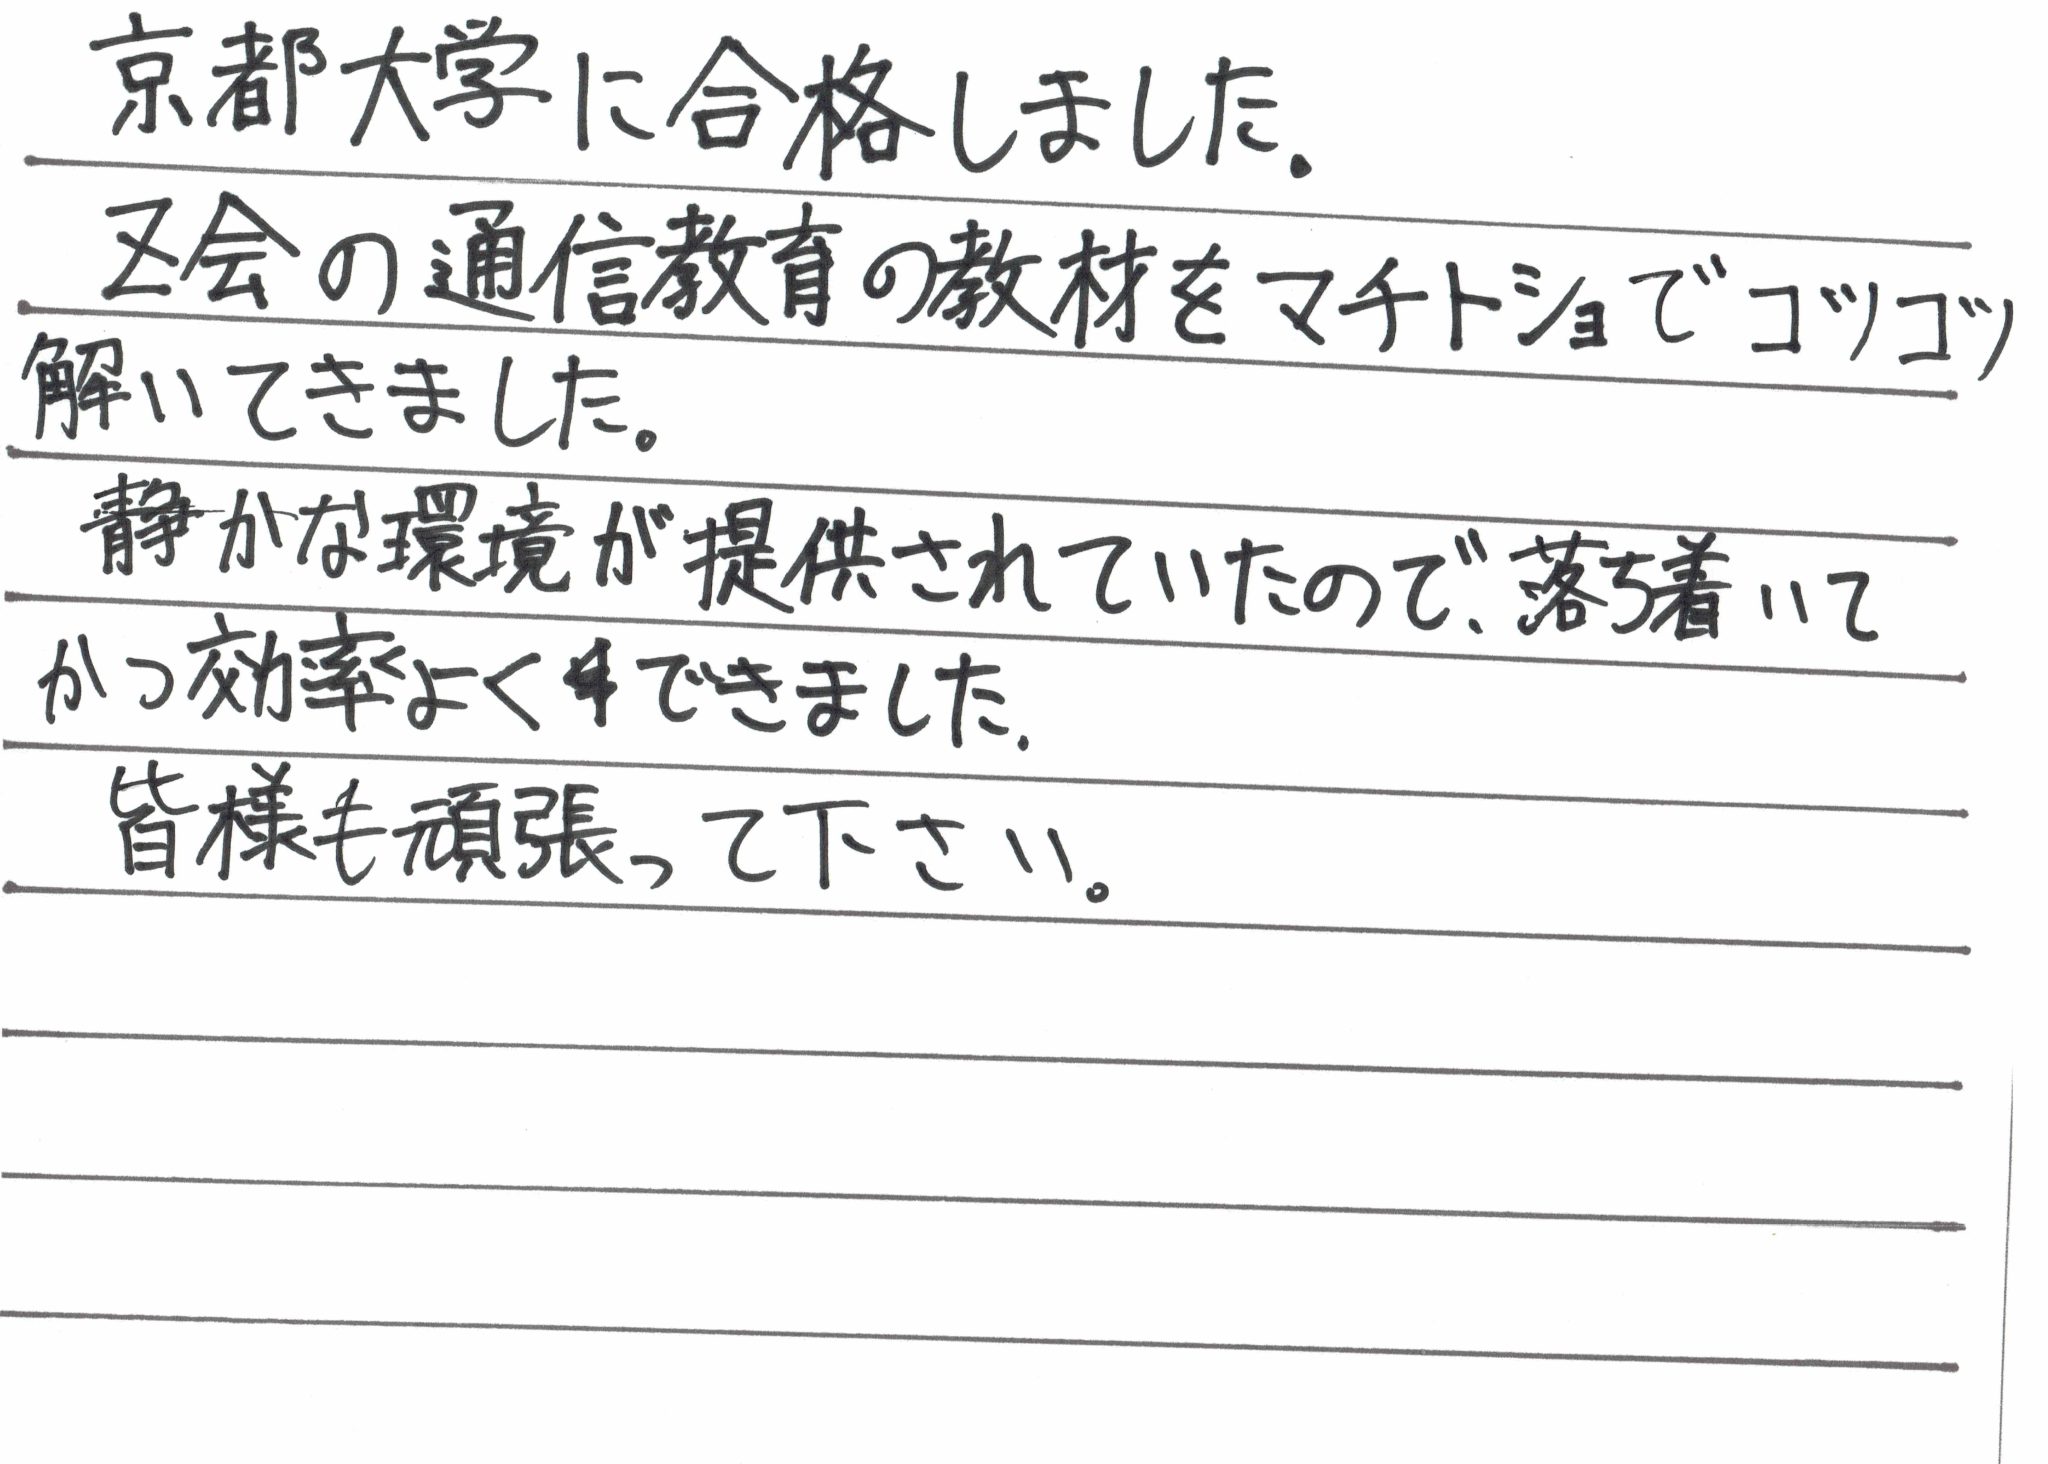 京都大学に合格しました.
Z会の通信教育の教材をマチトショでコツコツ
解いてきました。
静かな環境が提供されていたので、落ち着いて
かつ効率よくできました.
皆様も頑張って下さい。